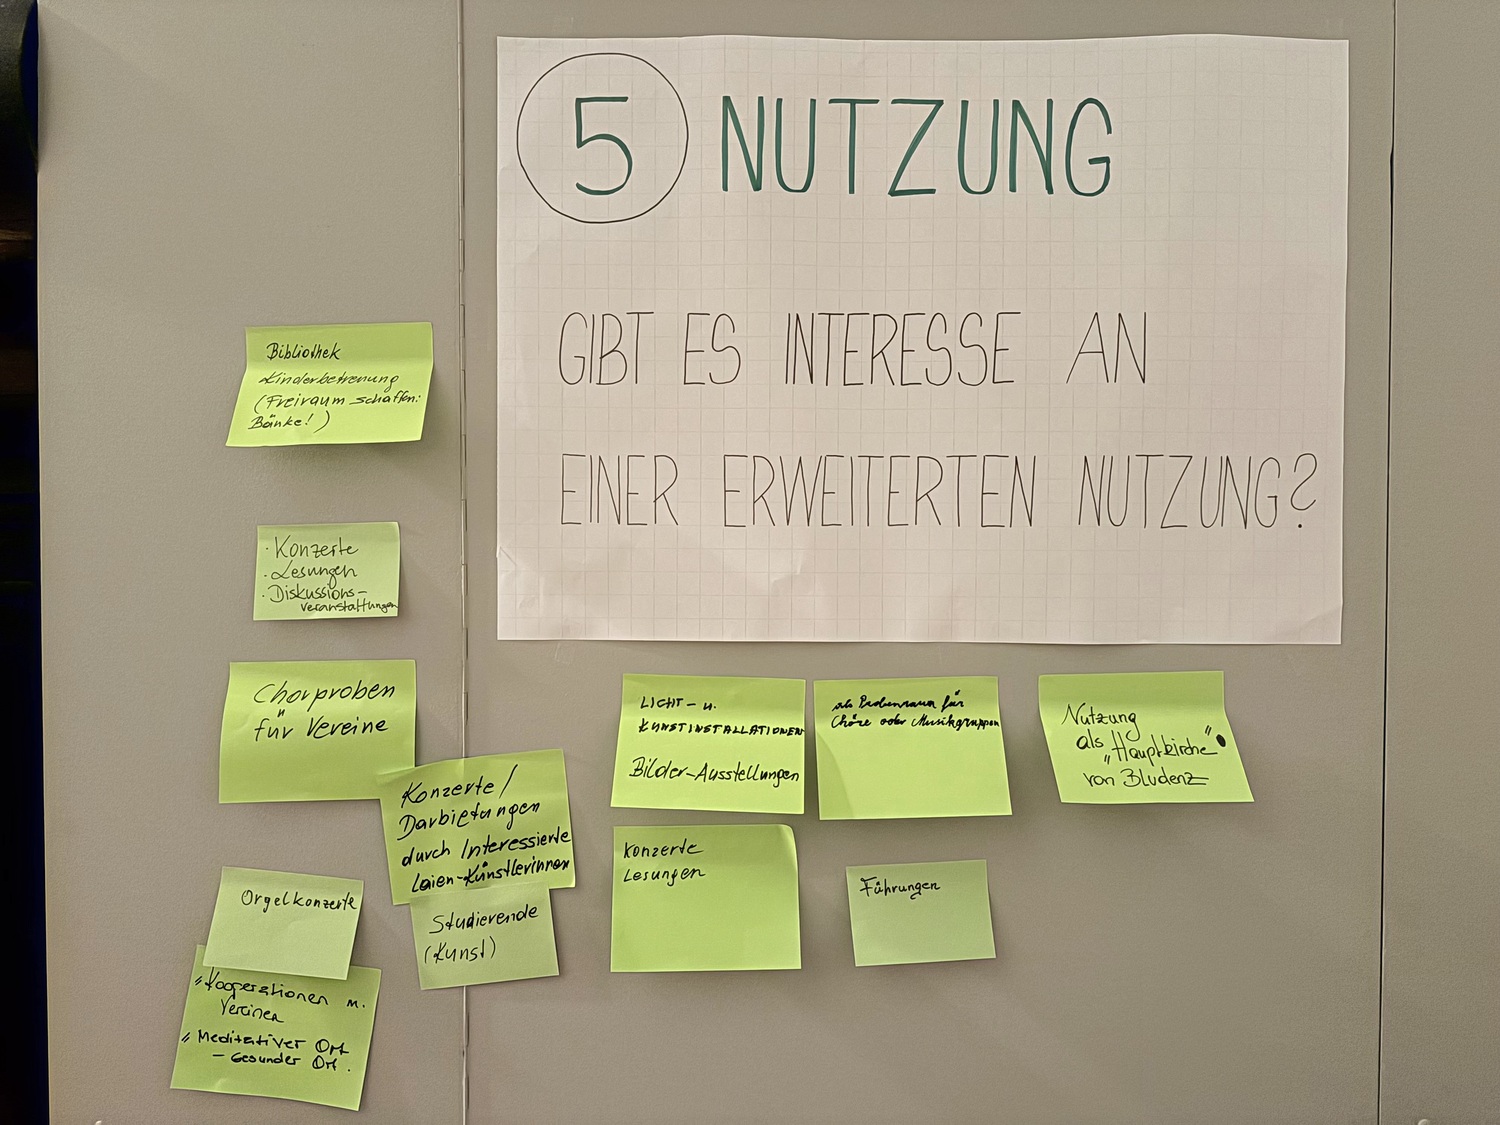 5 NUTZUNG
GIBT ES INTERESSE AN
EINER ERWEITERTEN NUTZUNG?
Bibliothek
Kinderbetreuung
(Freiraum schaffen:
Bänke!)
· Konzerte
· Lesungen
· Diskussions-
veranstaltungen
Chorproben
für Vereine
Konzerte/
Darbietungen
durch Interessierte
Laien-Künstlerinnen
Studierende
(Kunst)
Orgelkonzerte
"Kooperationen m.
Vereinen
"Meditativer Ort
- Gesunder Ort.
LICHT- u.
KUNSTINSTALLATIONEN
Bilder-Ausstellungen
als Probenraum für
Chöre oder Musikgruppen
Nutzung
als „Hauptkirche"
von Bludenz
Konzerte
Lesungen
Führungen